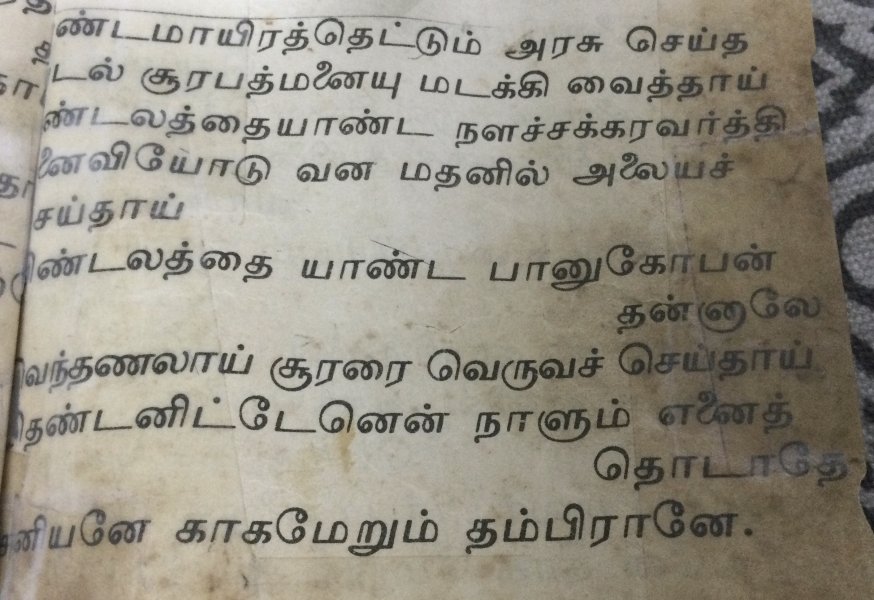 ண்டமாயிரத்தெட்டும் அரசு செய்த
டல் சூரபத்மனையு மடக்கி வைத்தாய்
ண்டலத்தையாண்ட நளச்சக்கரவர்த்தி
னைவியோடு வன மதனில் அலையச்
சய்தாய்
ண்டலத்தை யாண்ட பானுகோபன்
தன்னாலே
வெந்தணலாய் சூரரை வெருவச் செய்தாய்
தெண்டனிட்டேனென் நாளும் எனைத்
தொடாதே
சனியனே காகமேறும் தம்பிரானே.